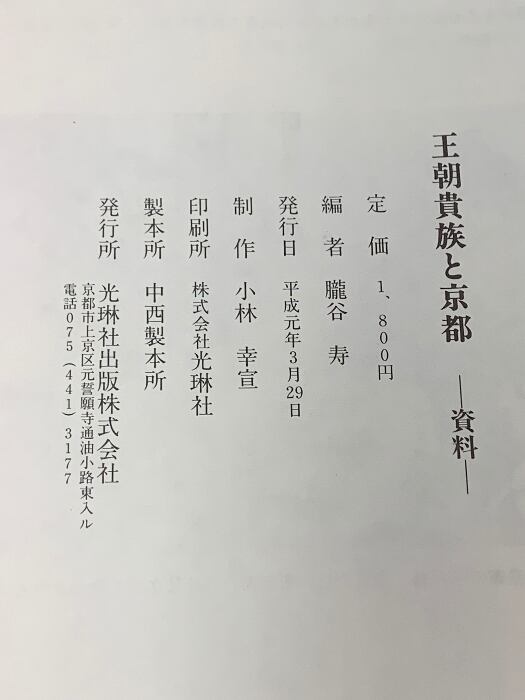 王朝貴族と京都 ―資料―
定価 1、800円
編者 朧谷 寿
発行日 平成元年3月29日
制作 小林 幸宣
印刷所 株式会社光琳社
製本所 中西製本所
発行所 光琳社出版株式会社
京都市上京区元誓願寺通油小路東入ル
電話075(441)3177